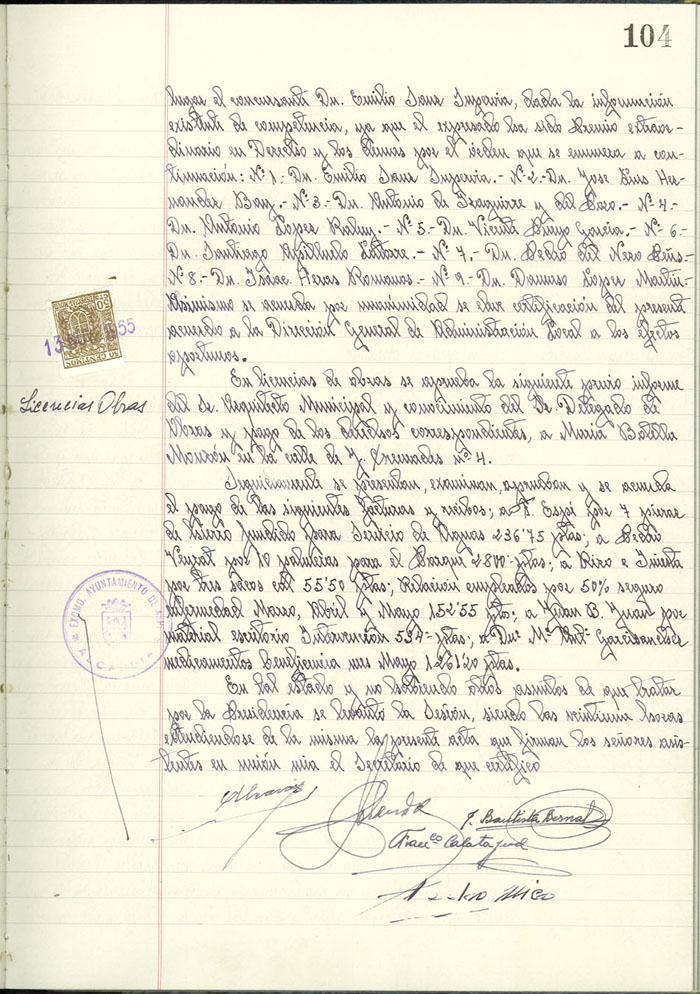 104
lugar el concursante Dn. Emilio Sanz, dada la información
existente de competencia, ya que el expresado ha sido Premio extraor-
dinario en Derecho y los demas por el orden que se enumera a con-
tinuación: Nº 1.- Dn. Emilio Sanz.- Nº 2.- Dn. Jose Luis Her-
nandez.- Nº 3.- Dn. Antonio de Izaguirre y del.- Nº 4.-
Dn. Antonio Lopez.- Nº 5.- Dn. Vicente Garcia.- Nº 6.-
Dn. Santiago Latorre.- Nº 7.- Dn. Pedro del Nero
Nº 8.- Dn. Isaac Heras Romanos.- Nº 9.- Dn. Damaso Lopez Martin-
Asimismo se acuerda por unanimidad se dar certificación del presente
acuerdo a la Dirección General de Administración Local a los efectos
oportunos.
50 CENTIMOS
13 55
Licencias Obras
En licencias de obras se aprueba la siguiente previo informe
del Sr. Arquitecto Municipal y conocimiento del Sr. Delegado de
Obras y pago de los derechos correspondientes, a Maria Botella
Monzón en la calle de J. Cremades nº 4.
Seguidamente se presentan, examinan, aprueban y se acuerda
el pago de las siguientes facturas y recibos; a A. Espí por 7 piezas
de hierro fundido para Servicio de Aguas 236'75 ptas; a Pedro
Verzat por 10 palmeras para el Parque ptas; a Rico e Iniesta
por tres sacos cal 55'50 ptas; Relación empleados por 50% seguro
enfermedad Marzo, Abril y Mayo 152'55 ptas; a B. Juan por
material escritorio Intervención 534- ptas; a Dnª Mª Antª
medicamentos beneficencia mes Mayo ptas.
EXCMO. AYUNTAMIENTO DE
ALCALDIA
En tal estado y no habiendo otros asuntos de que tratar
por la Presidencia se levantó la Sesión, siendo las veintiuna horas
extendiendose de la misma la presente acta que firman los señores asis-
tentes en unión mia el Secretario de que certifico
J. Bautista Bernal
Francº Calatayud
Pedro Mico